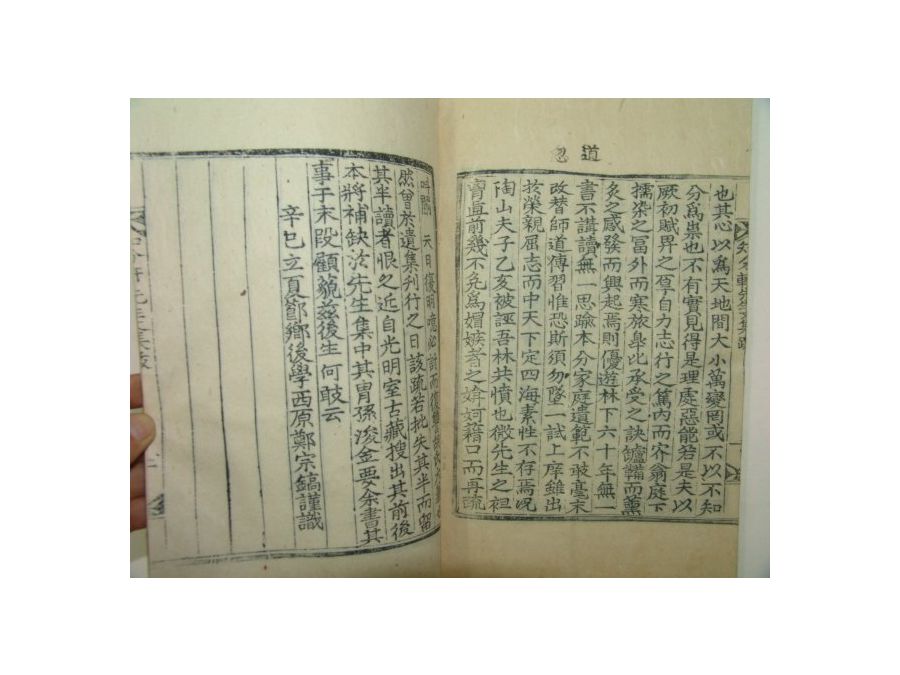 道
也其心以爲天地間大小萬變罔或不以不知
分爲祟也不有實見得是理處惡能若是夫以
厥初賦畀之厚自力志行之篤內而齐翁庭下
擩染之冨外而寒旅舉比承受之訣鑪鞴而薰
炙之感發而興起焉則優遊林下六十年無一
書不講讀無一思踰本分家庭遺範不敢毫末
改替師道傳習惟恐斯須勿墜一試上庠雖出
於榮親屈志而中天下定四海素性不存焉況
陶山夫子乙亥被誣吾林共憤也微先生之袒
冑直前幾不免爲媢嫉者之媕婀籍口而再疏
叫閽 天日復明噫
然曾於遺集刊行之日該疏若批失其半而留
其半讀者恨之近自光明室古藏搜出其前後
本將補缺於先生集中其冑孫浚金要余書其
事于末段顧藐玆後生何敢云
辛巳立夏節鄉後學西原鄭宗鎬謹識